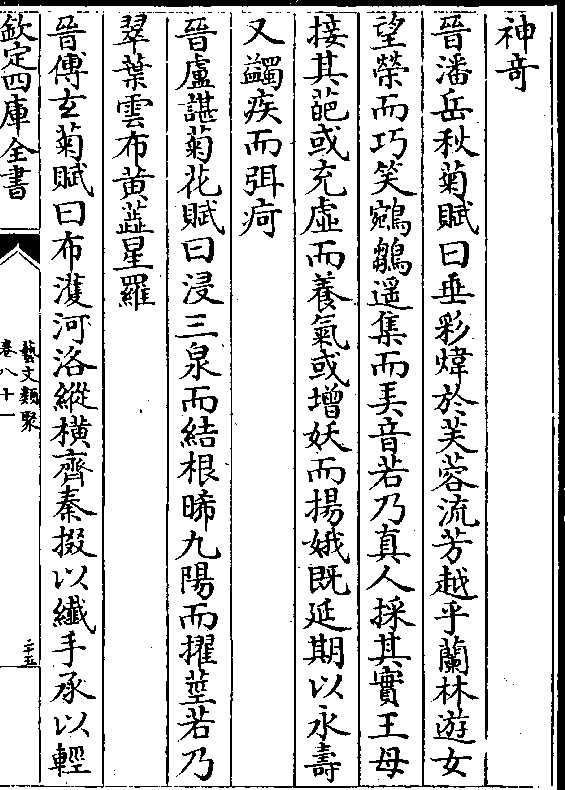 神奇
晉潘岳秋菊賦曰垂彩煒於芙蓉流芳越乎蘭林遊女
望榮而巧笑鵷鶵遥集而弄音若乃真人採其實王母
接其葩或充虚而養氣或增妖而揚娥既延期以永壽
又蠲疾而弭痾
晉盧諶菊花賦曰浸三泉而結根晞九陽而擢莖若乃
翠葉雲布黄蘂星羅
晉傅玄菊賦曰布濩河洛縱横齊秦掇以纖手承以輕
欽定四庫全書
藝文類聚
卷八十一
二十五